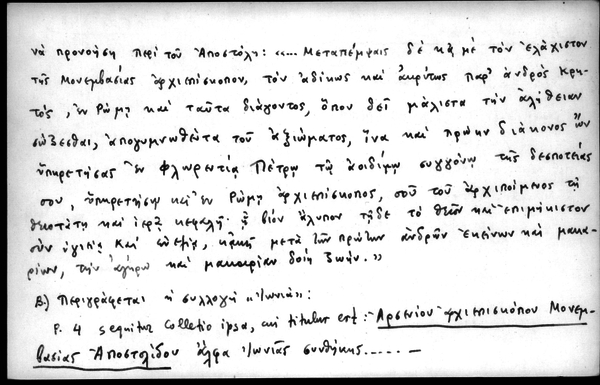 νὰ προνοήσῃ περὶ τοῦ Ἀποστόλη: «... Μεταπέμψαις δέ κᾳ μὲ τὸν ἐλάχιστον
τῆς Μονεμβασίας ἀρχιεπίσκοπον, τὸν ἀδίκως καὶ ἀκρίτως παρ' ἀνδρὸς κρη-
τὸς, ἐν Ῥώμῃ καὶ ταῦτα διάγοντος, ὅπου δεῖ μάλιστα τὴν ἀλήθειαν
σῴζεσθαι, ἀπογυμνωθέντα τοῦ ἀξιώματος, ἵνα καὶ πρώην διάκονος ὢν
ὑπηρετήσας ἐν Φλωρεντίᾳ Πέτρῳ τῷ ἀοιδίμῳ συγγόνῳ τῆς δεσποτείας
σου, ὑπηρετήσῃ καὶ ἐν Ῥώμῃ ἀρχιεπίσκοπος, σοῦ τοῦ ἀρχιποίμενος τῇ
θειοτάτῃ καὶ ἱερᾷ κεφαλῇ· ᾗ βίον ἄλυπον τῇδε τὸ θεῖον καὶ ἐπιμήκιστον
σὺν ὑγιείᾳ καὶ μετὰ τῶν πρώτων ἀνδρῶν ἐκείνων καὶ μακα-
ρίων, τὴν ἀγήρω καὶ μακαρίαν δοίη ζωήν.»
Β.) Περιγράφεται ἡ συλλογὴ «Ἰωνιά»:
P. 4 sequitur colletio ipsa, cui titulus est: Ἀρσενίου ἀρχιεπισκόπου Μονεμ-
βασίας Ἀποστολίδου ἄλφα Ἰωνιᾶς συνθήκης..... —